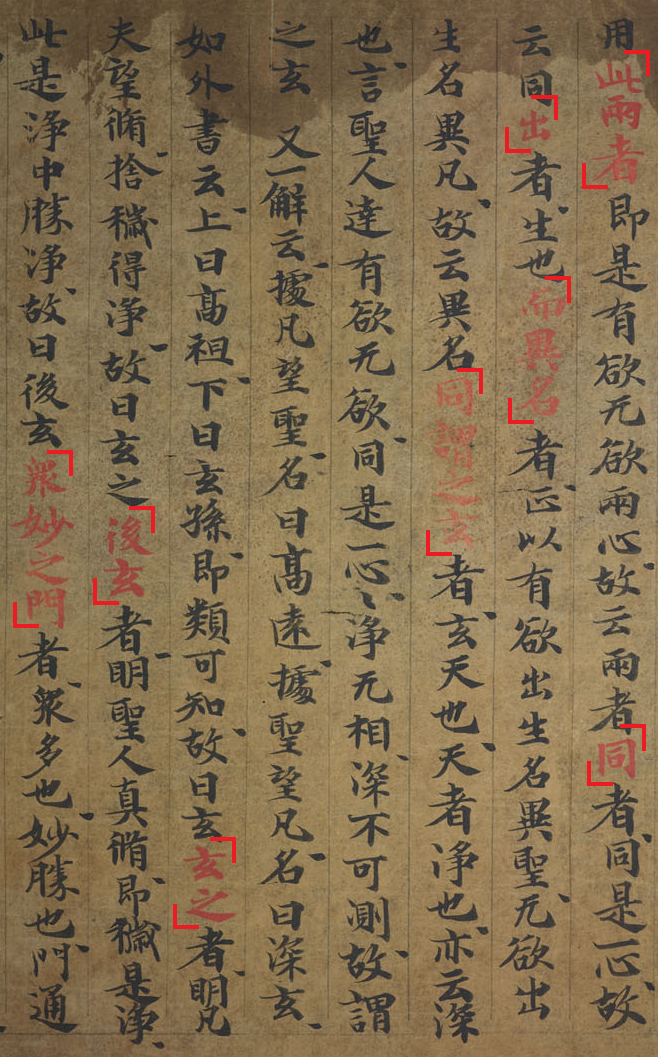 用此兩者即是有欲无欲兩心故云兩者同者同是一心故
云同出者生也而異名者正以有欲出生名異聖无欲出
生名異凡故云異名同謂之玄者玄天也天者淨也亦云深
也言聖人達有欲无欲同是一心〻淨无相深不可測故謂
之玄又一解云據凡望聖名曰髙遠據聖望凡名曰深玄
如外書云上曰髙祖下曰玄孫即類可知故曰玄玄之者明凡
夫望脩捨穢得淨故曰玄之後玄者明聖人真脩即穢是淨
此是淨中勝淨故曰後玄衆妙之門者衆多也妙勝也門通